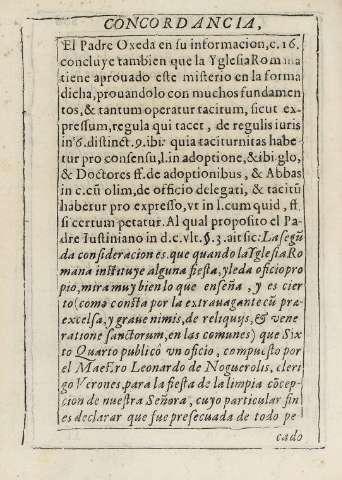 CONCORDANCIA,
El Padre Oxeda en su informacion, c. 16.
concluye tambien que la Yglesia Romana
tiene aprouado este misterio en la forma
dicha, prouandolo con muchos fundamen
tos, & tantum operatur tacitum, sicut ex-
pressum, regula qui tacet, de regulis iuris
in 6. distinct. 9. ibi: quia taciturnitas habe
tur pro consensu, l. in adoptione, & ibi glo,
& Doctores ff. de adoptionibus, & Abbas
in c. cũ olim, de officio delegati, & tacitũ
habetur pro expresso, vt in l. cum quid, ff.
si certum petatur. Al qual proposito el Pa
dre Iustiniano in d. c. vlt. §. 3. ait sic: La segũ
da consideracion es, que quando la Yglesia Ro
mana instituye alguna fiesta, y le da oficio pro
pio, mira muy bien lo que enseña, y es cier
to (como consta por la extrauagante cũ præ-
excelsa, y graue nimis, de reliquijs, & vene
ratione sanctorum, en las comunes) que Six
to Quarto publicò vn oficio, compuesto por
el Maestro Leonardo de Noguerolis, cleri
go Verones, para la fiesta de la limpia cõcep-
cion de nuestra Señora, cuyo particular fin
es declarar que fue preseruada de todo pe
cado